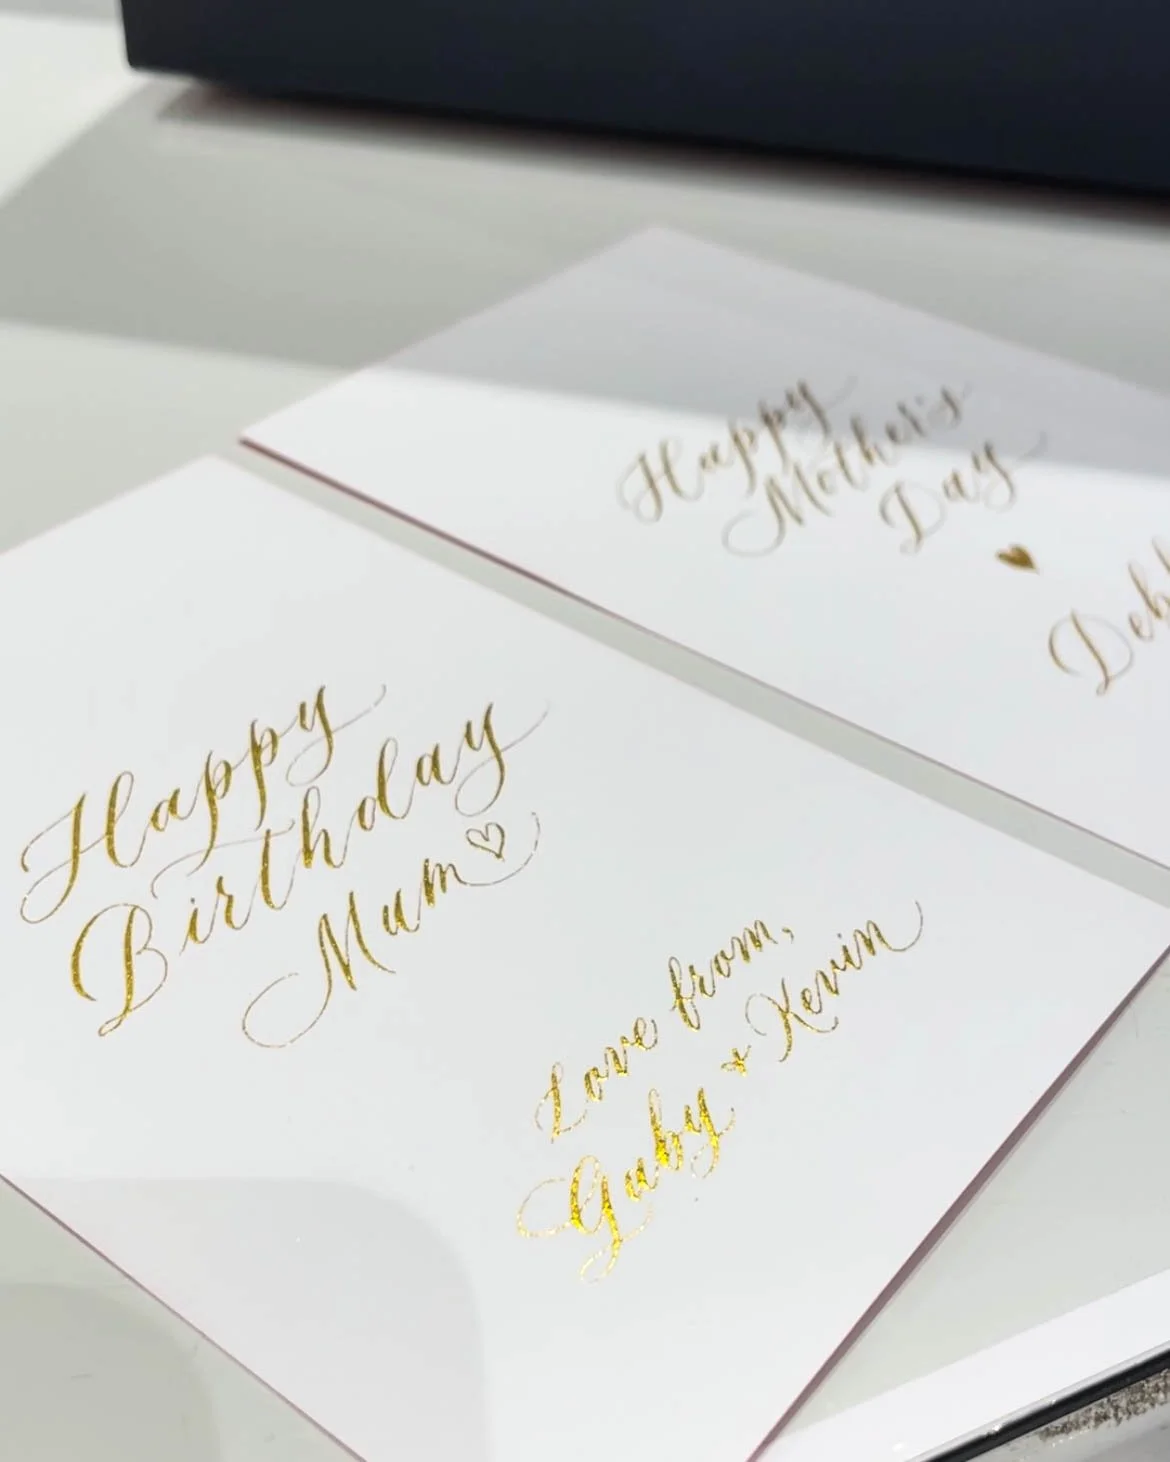 Happy
Birthday
Mum♡
Love from,
Gaby + Kevin
Happy
Mother's
Day
♥